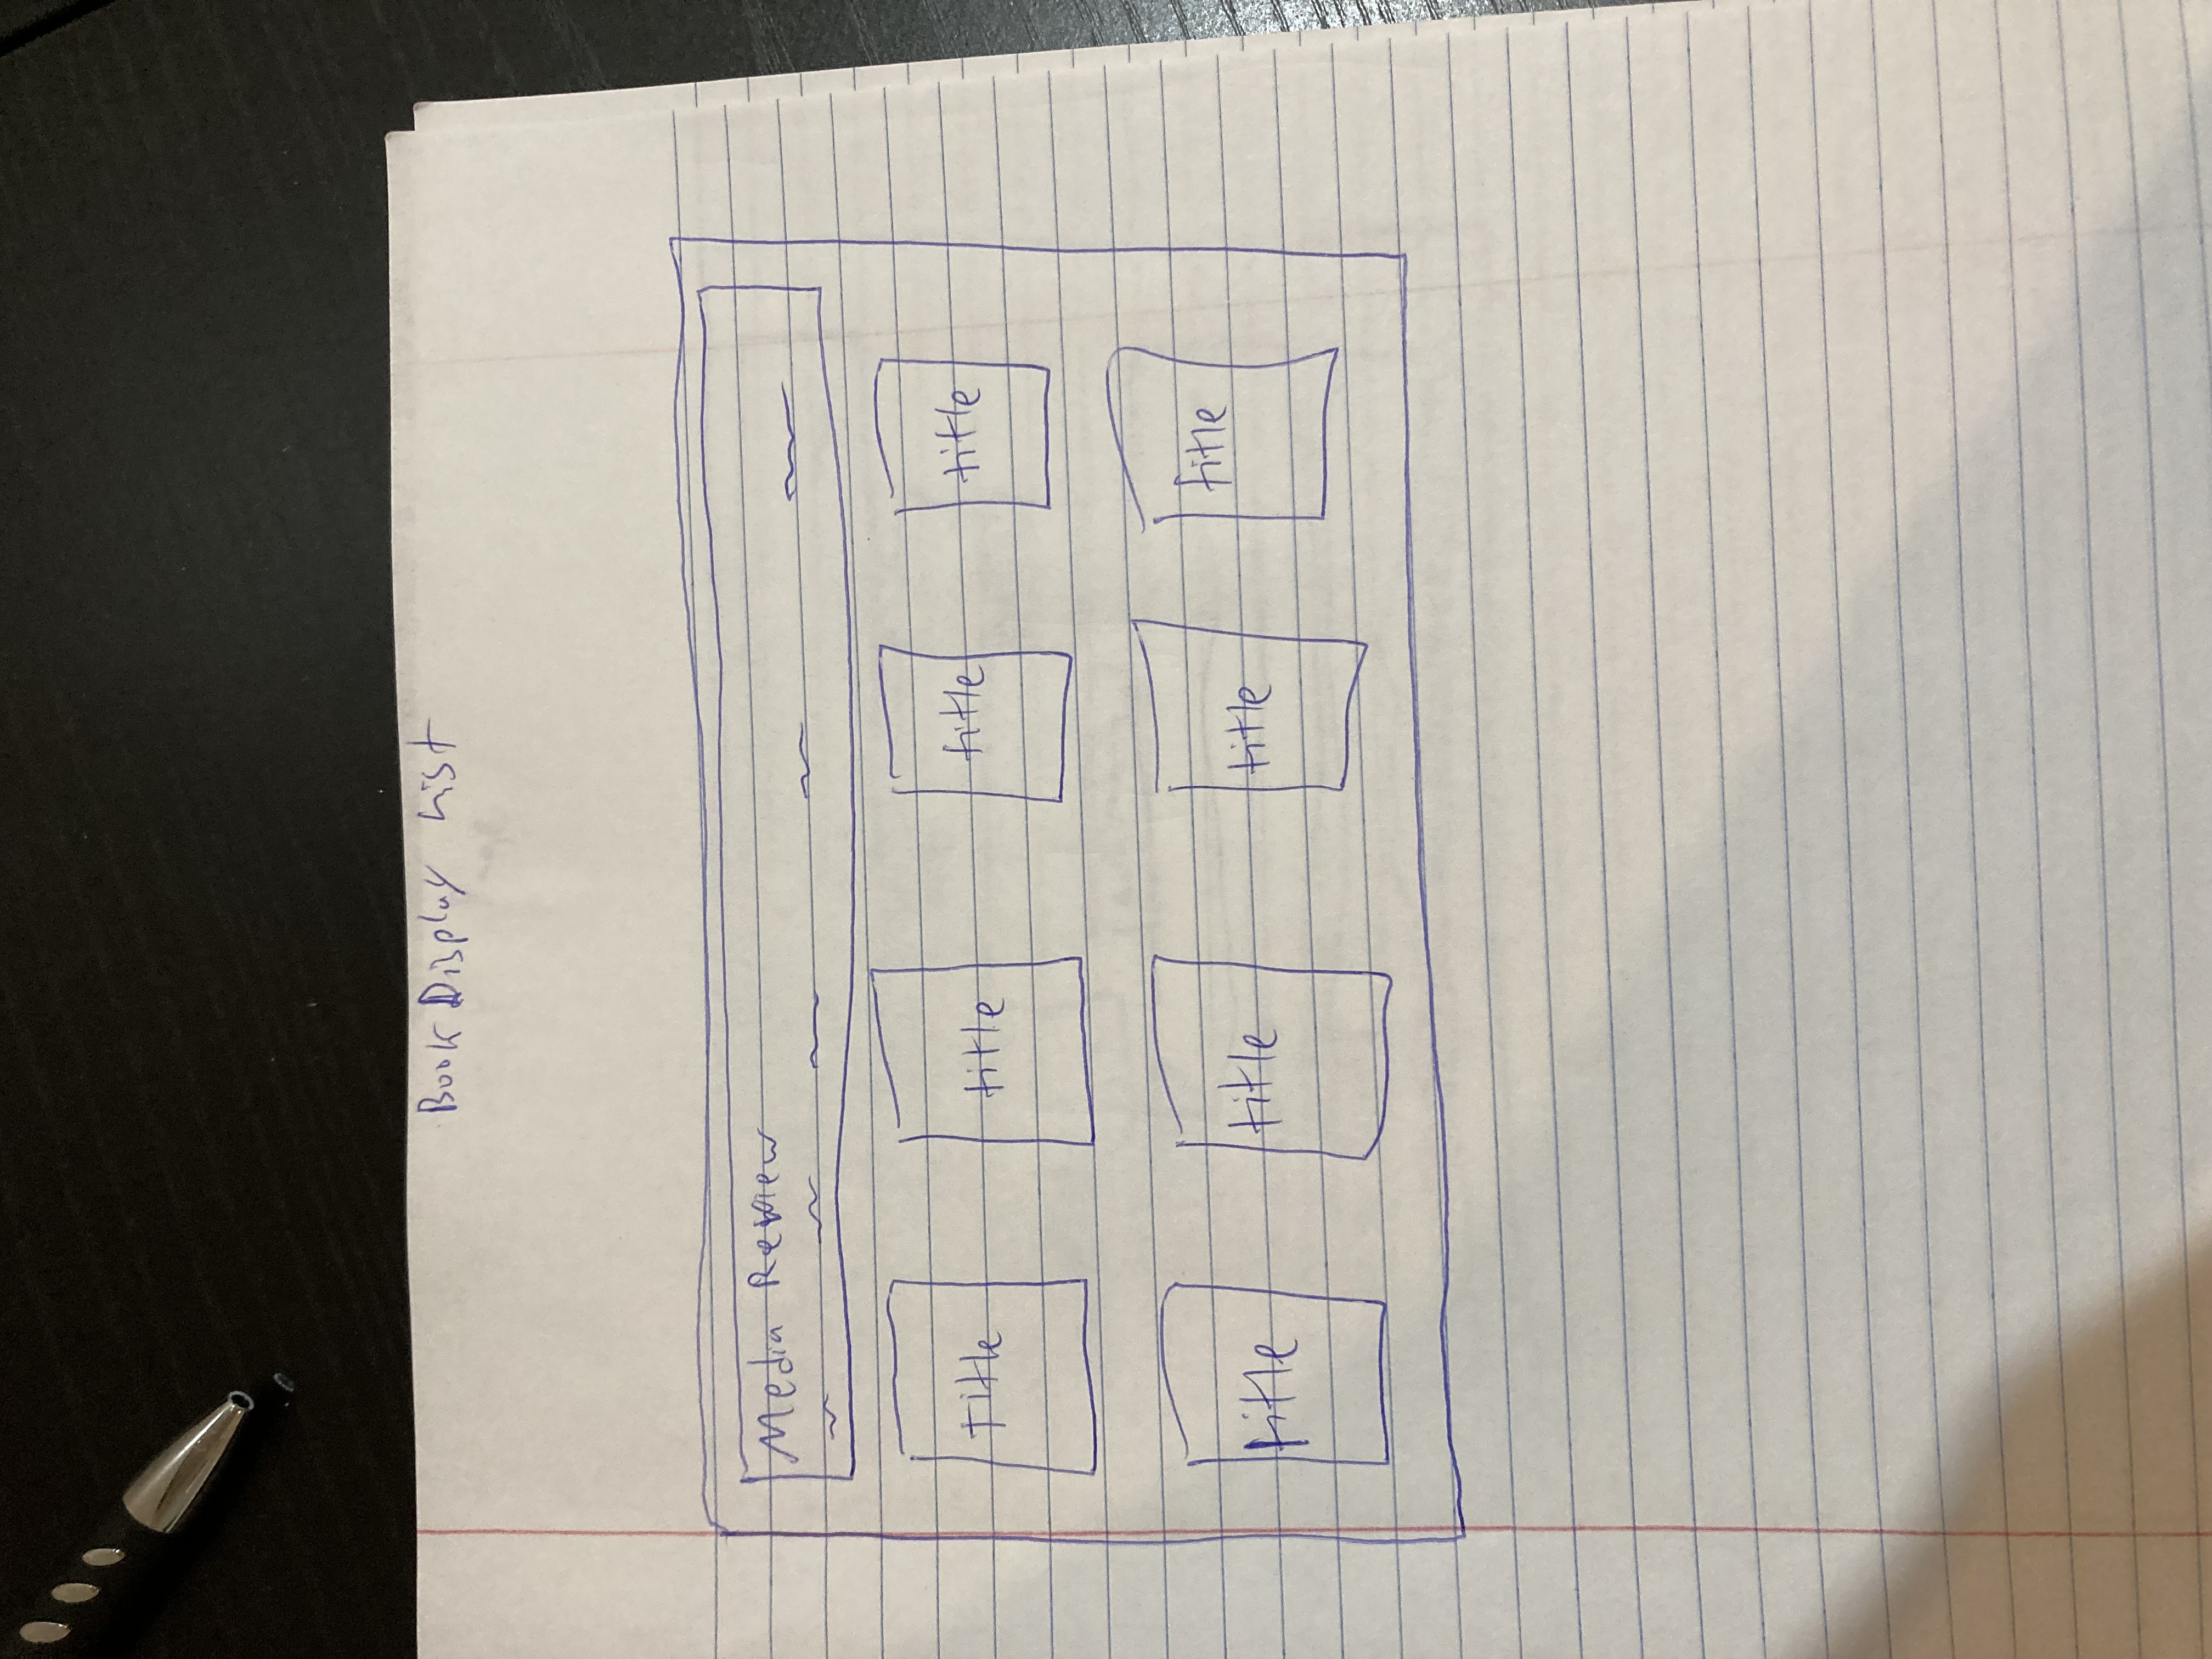 Book Display List
Media Review
Title title title title
title title title title